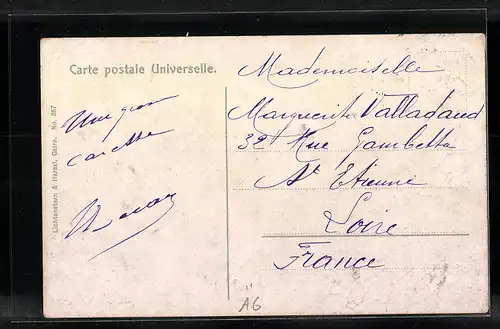 Carte postale Universelle.
Une
caresse
Mademoiselle
Marguerite Valladaud
32 Rue Gambetta
St Etienne
Loire
France
Lichtenstern & Harari, Cairo. No. 257
A6